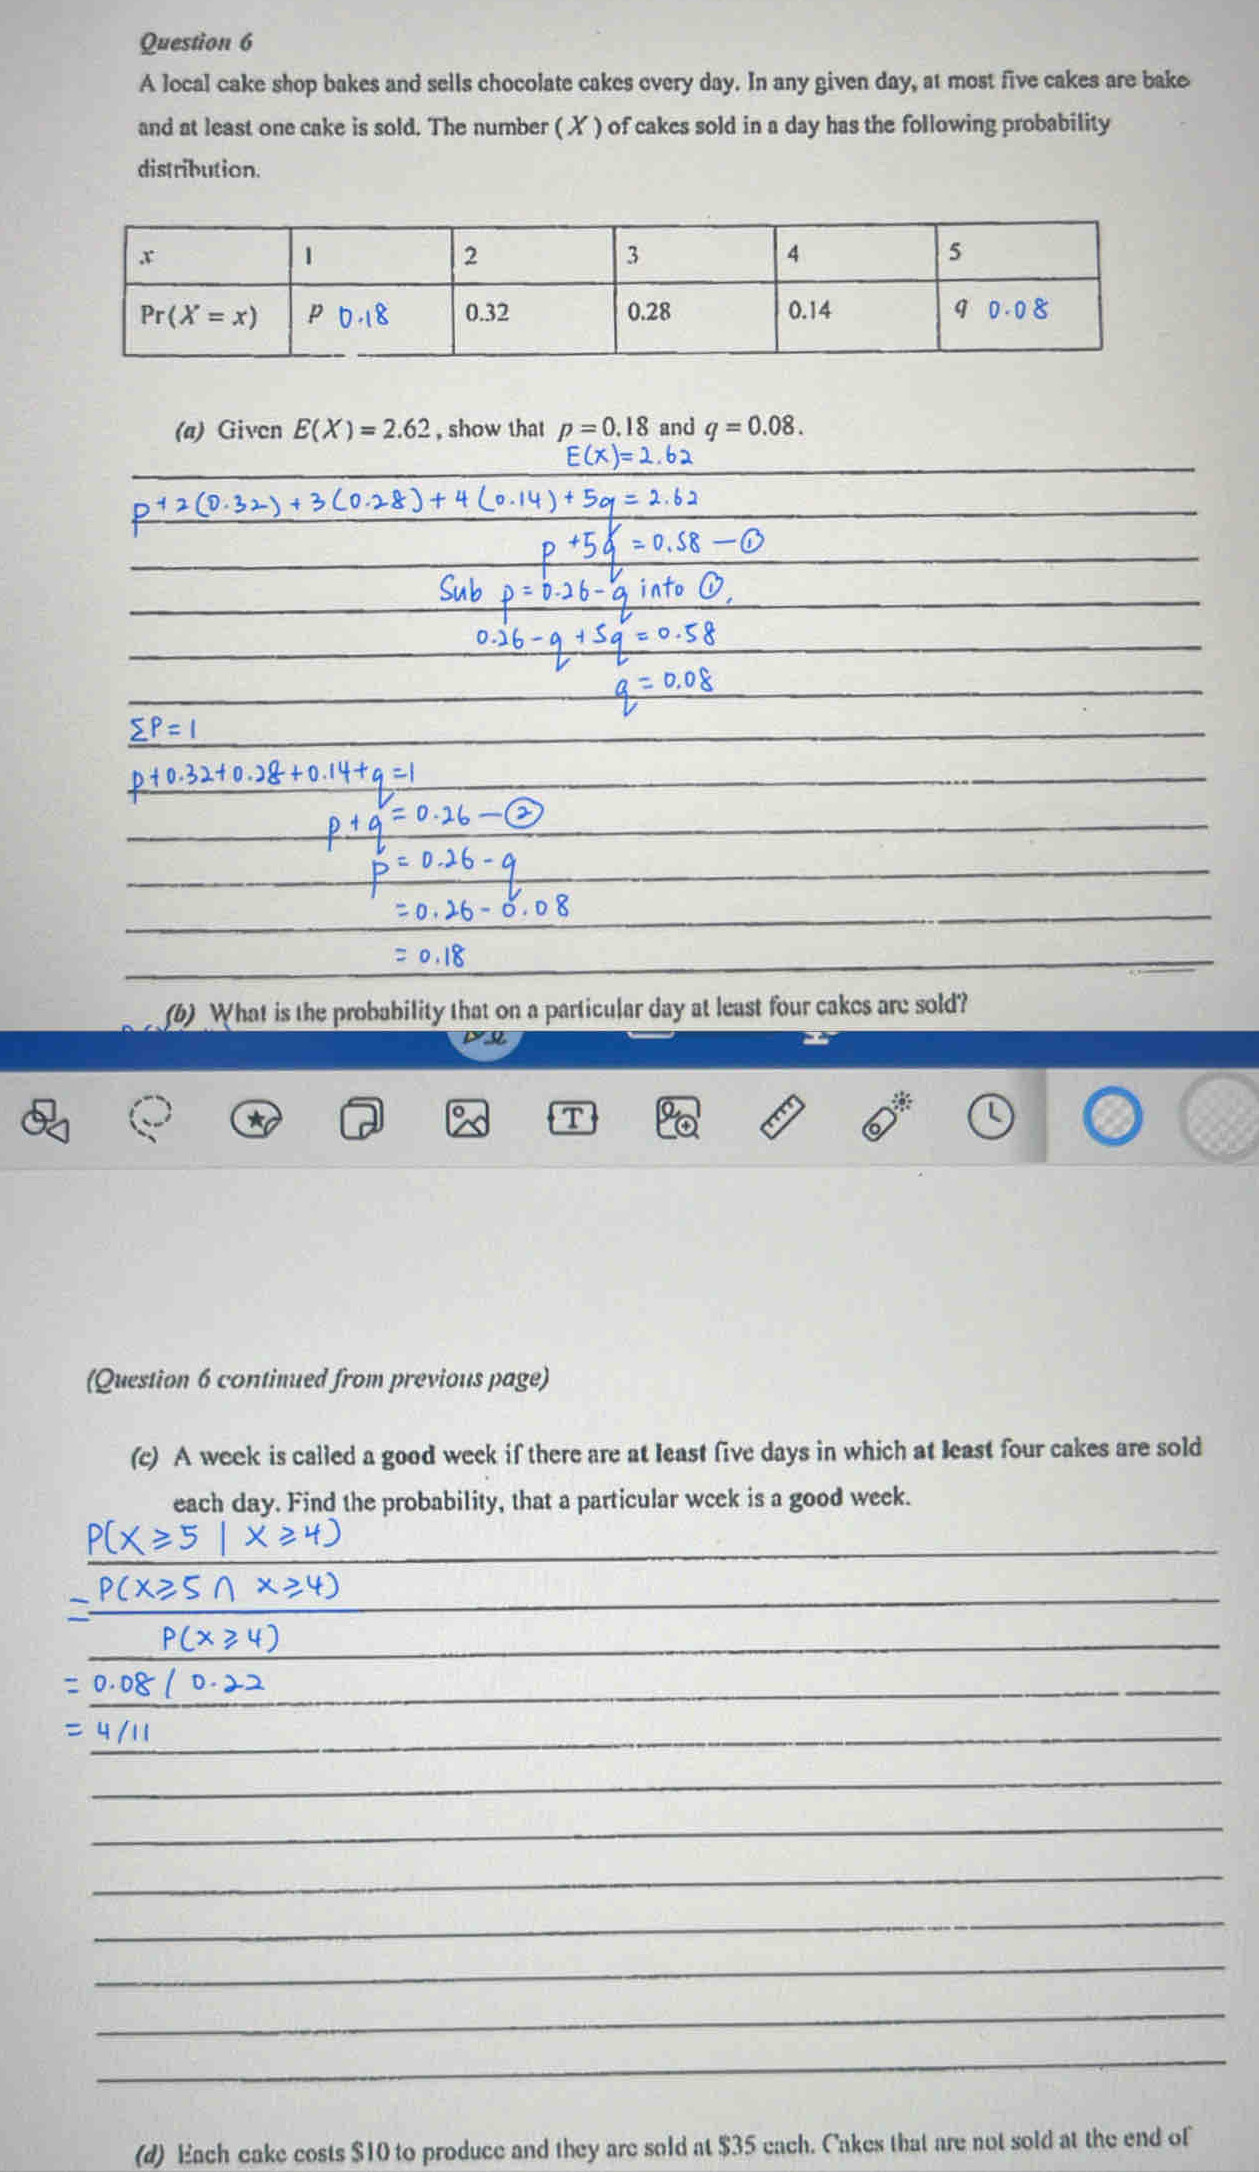 Question 6
A local cake shop bakes and sells chocolate cakes every day. In any given day, at most five cakes are bake
and at least one cake is sold. The number ( X ) of cakes sold in a day has the following probability
distribution.
x 1 2 3 4 5
Pr(X = x) p 0.18 0.32 0.28 0.14 q 0.08
(a) Given E(X) = 2.62, show that p = 0.18 and q = 0.08.
E(X)=2.62
p+2(0.32)+3(0.28)+4(0.14)+5q=2.62
p+5q=0.58 — ①
Sub p=0.26-q into ①,
0.26-q+5q=0.58
q=0.08
ΣP=1
p+0.32+0.28+0.14+q=1
p+q=0.26 — ②
p=0.26-q
=0.26-0.08
=0.18
(b) What is the probability that on a particular day at least four cakes are sold?
T
(Question 6 continued from previous page)
(c) A week is called a good week if there are at least five days in which at least four cakes are sold
each day. Find the probability, that a particular week is a good week.
P(X≥5 | X≥4)
= P(X≥5 ∩ X≥4)
P(X≥4)
= 0.08 / 0.22
= 4/11
(d) Each cake costs $10 to produce and they are sold at $35 each. Cakes that are not sold at the end of